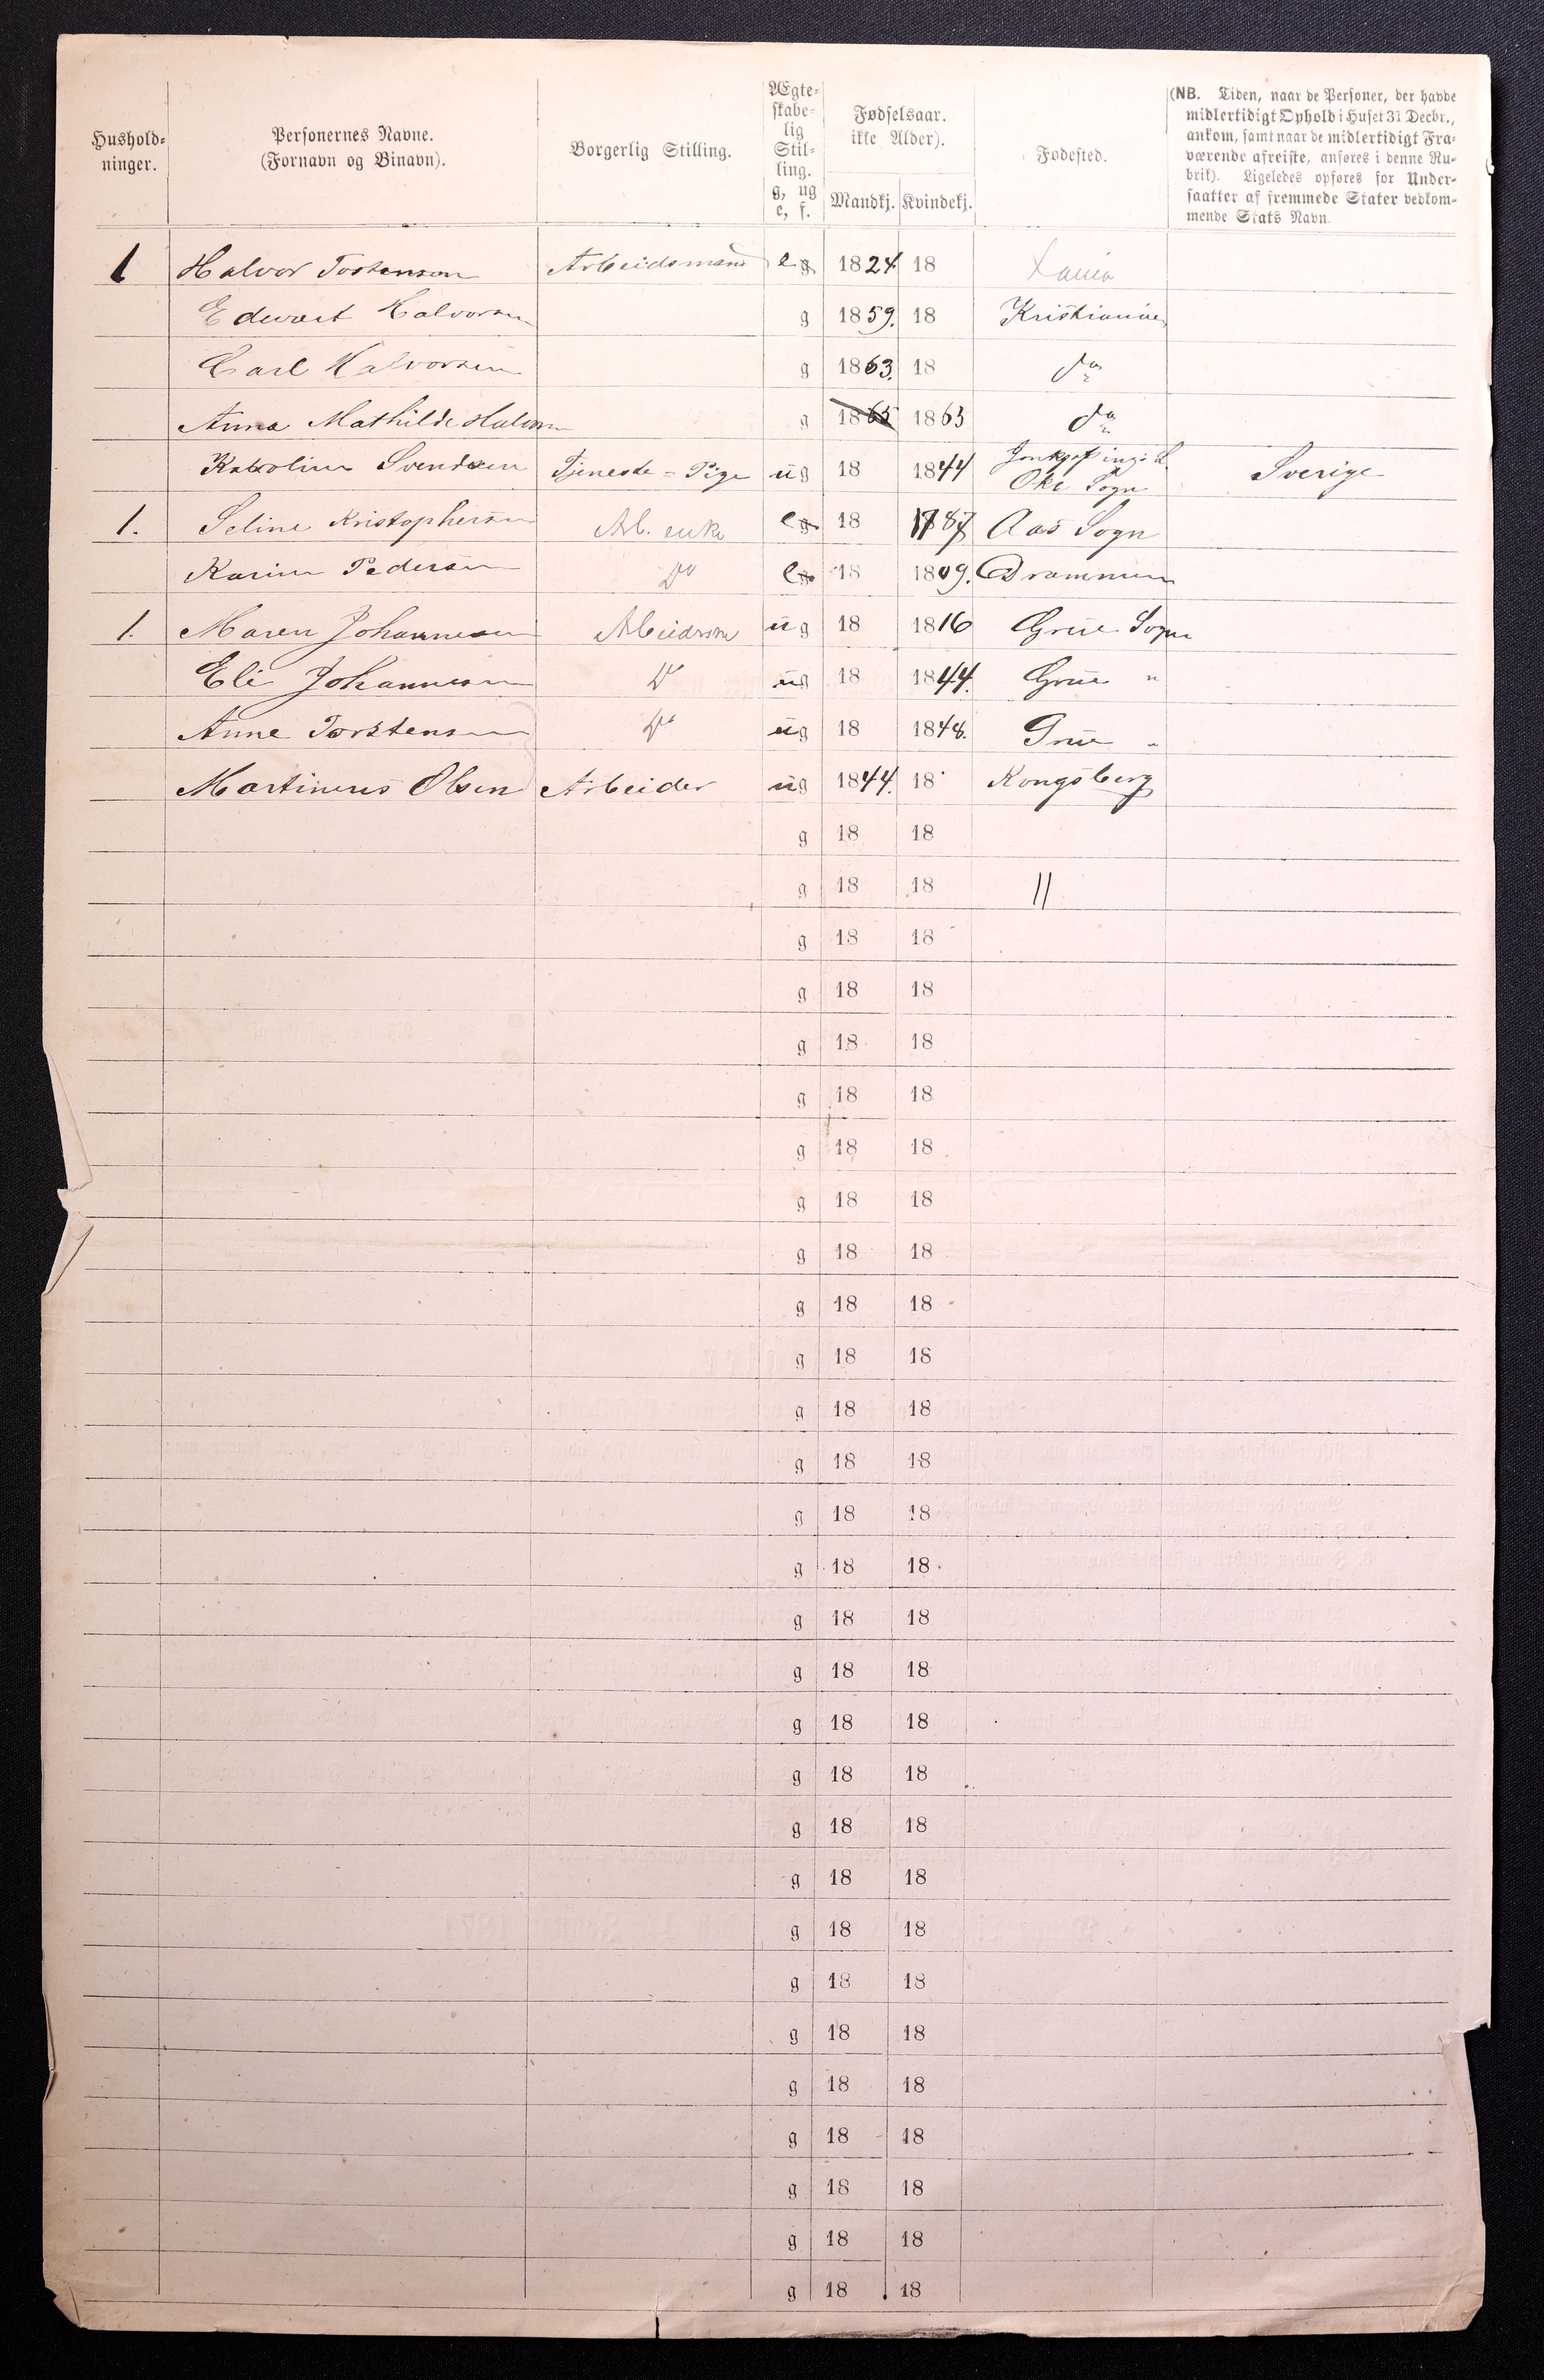 Hushold-
ninger.
Personernes Navne.
(Fornavn og Binavn).
Borgerlig Stilling.
Ægte-
skabe-
lig
Stil-
ling.
g, ug
e, f.
Fødselsaar.
ikke Alder).
Mandkj. Kvindekj.
Fødested.
(NB. Tiden, naar de Personer, der havde
midlertidigt Ophold i Huset 31 Decbr.,
ankom, samt naar de midlertidigt Fra-
værende afreiste, anføres i denne Ru-
brik). Ligeledes opføres for Under-
saatter af fremmede Stater vedkom-
mende Stats Navn.
1 Halvor Tostenson Arbeidsmand e g 1824 18 Xania
Edvart Halvorsen g 1859. 18 Kristiania
Carl Halvorsen g 1863. 18 do
Anna Mathilde Halvorsen g 1865 1865 do
Karoline Svendsen Tjeneste = Pige ug 18 1844 Jonkøpings L. Sverige
Sogn
1. Seline Kristophersen Arb. enke e g 18 1787 Aas Sogn
Karine Pedersen Do e g 18 1809. Drammen
1. Maren Johannesen ug 18 1816 Grue Sogn
Eli Johannesen Do ug 18 1844. Grue "
Anne Torstensen Do ug 18 1848. Grue "
Martinus Olsen Arbeider ug 1844. 18 Kongsberg
g 18 18
g 18 18 //
g 18 18
g 18 18
g 18 18
g 18 18
g 18 18
g 18 18
g 18 18
g 18 18
g 18 18
g 18 18
g 18 18
g 18 18
g 18 18
g 18 18
g 18 18
g 18 18
g 18 18
g 18 18
g 18 18
g 18 18
g 18 18
g 18 18
g 18 18
g 18 18
g 18 18
g 18 18
g 18 18